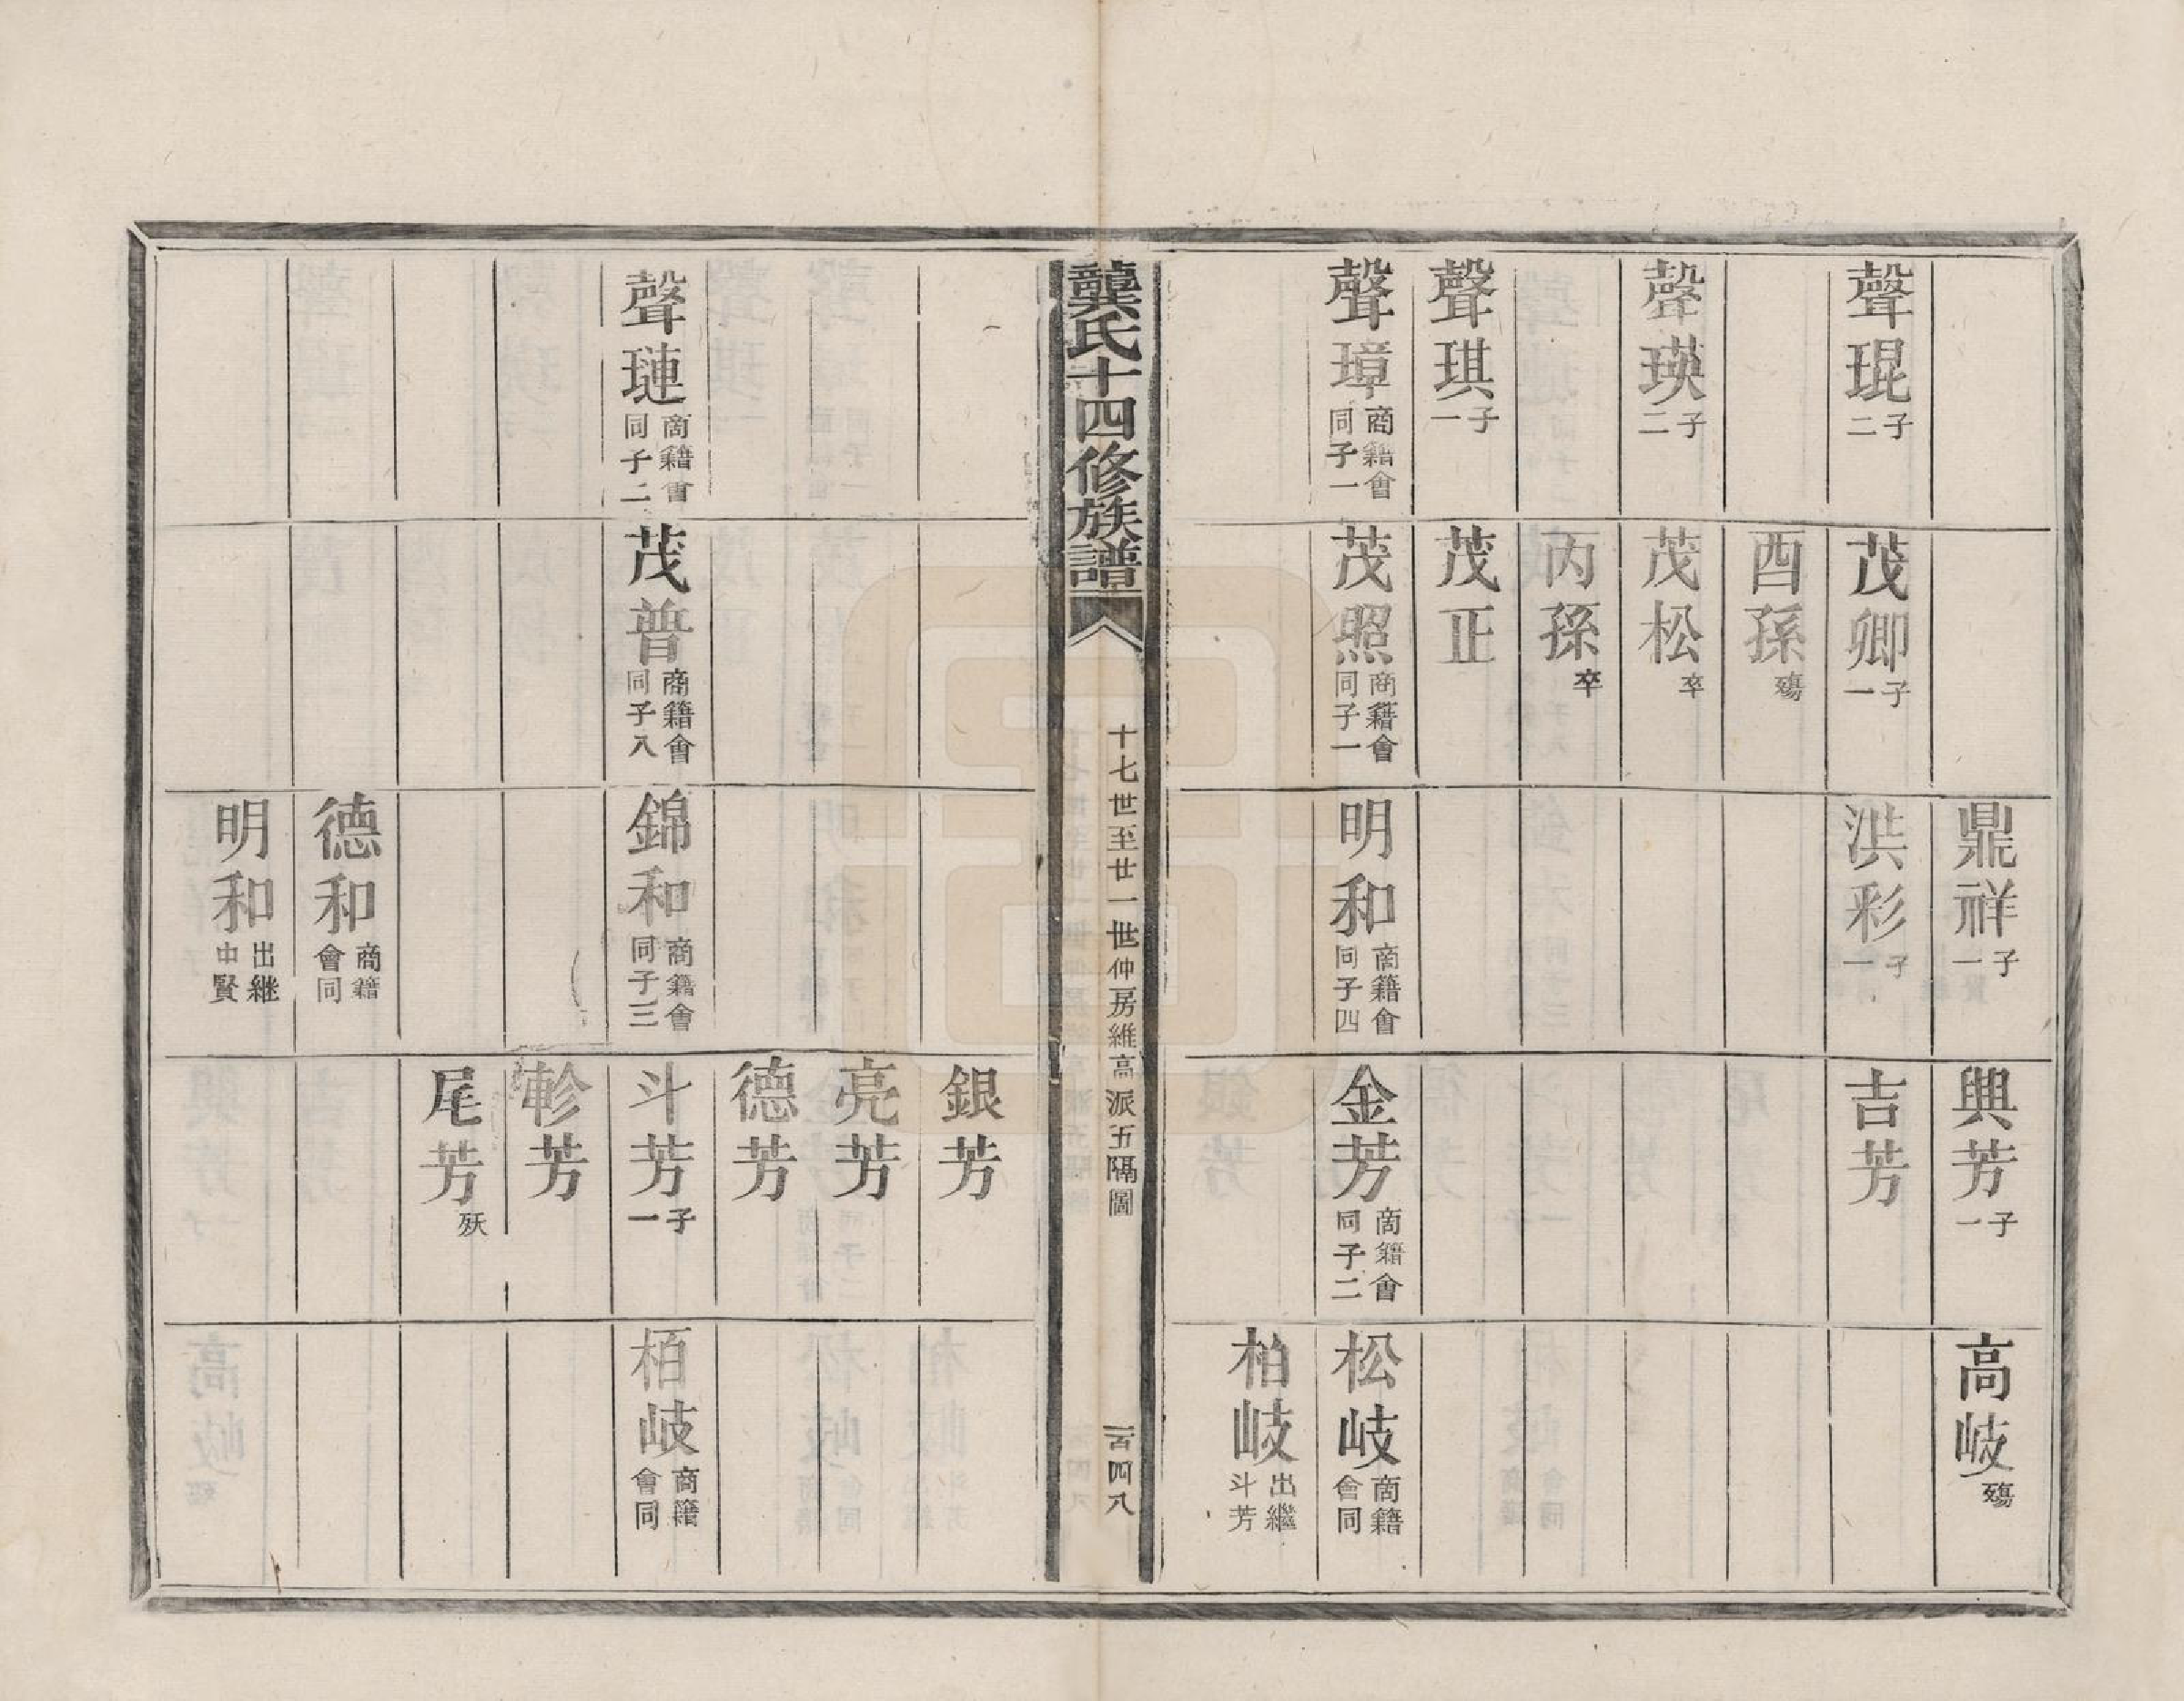 聲琨子二
聲瑛子二
聲琪子一
聲璋商籍會同子一
茂卿子一
酉孫殤
茂松卒
丙孫卒
茂正
茂照商籍會同子一
鼎祥子一
洪彩子一
明和商籍會同子四
興芳子一
吉芳
金芳商籍會同子二
高岐殤
松岐商籍會同
柏岐出繼斗芳
龔氏十四修族譜
十七世至廿一世仲房維高派五隔圖
一百四八
聲璉商籍會同子二
茂普商籍會同子八
錦和商籍會同子三
德和商籍會同
明和出継中賢
銀芳
亮芳
德芳
斗芳子一
軫芳
尾芳殀
栢岐商籍會同